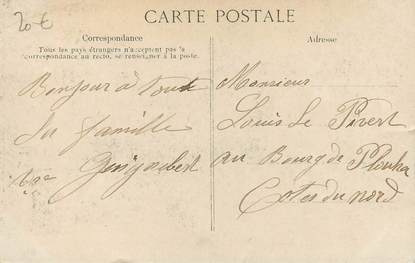 20 €
CARTE POSTALE
Correspondance
Tous les pays étrangers n'acceptent pas la
correspondance au recto, se renseigner à la poste.
Adresse
Bonjour a toute
la famille
Monsieur
Louis Le Pivert
au Bourg de Plouha
Cotes du nord